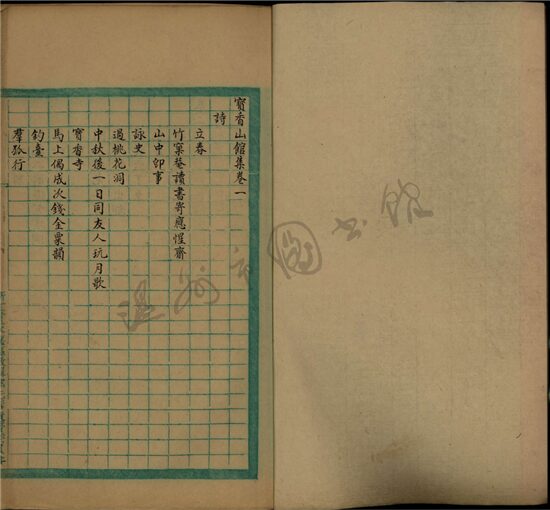 寶香山館集卷一
詩
立春
竹窠菴讀書寄應惺齋
山中卽事
詠史
過桃花洞
中秋後一日同友人玩月歌
寶香寺
馬上偶成次錢全衆韻
釣臺
羣狐行
溫州市圖書館